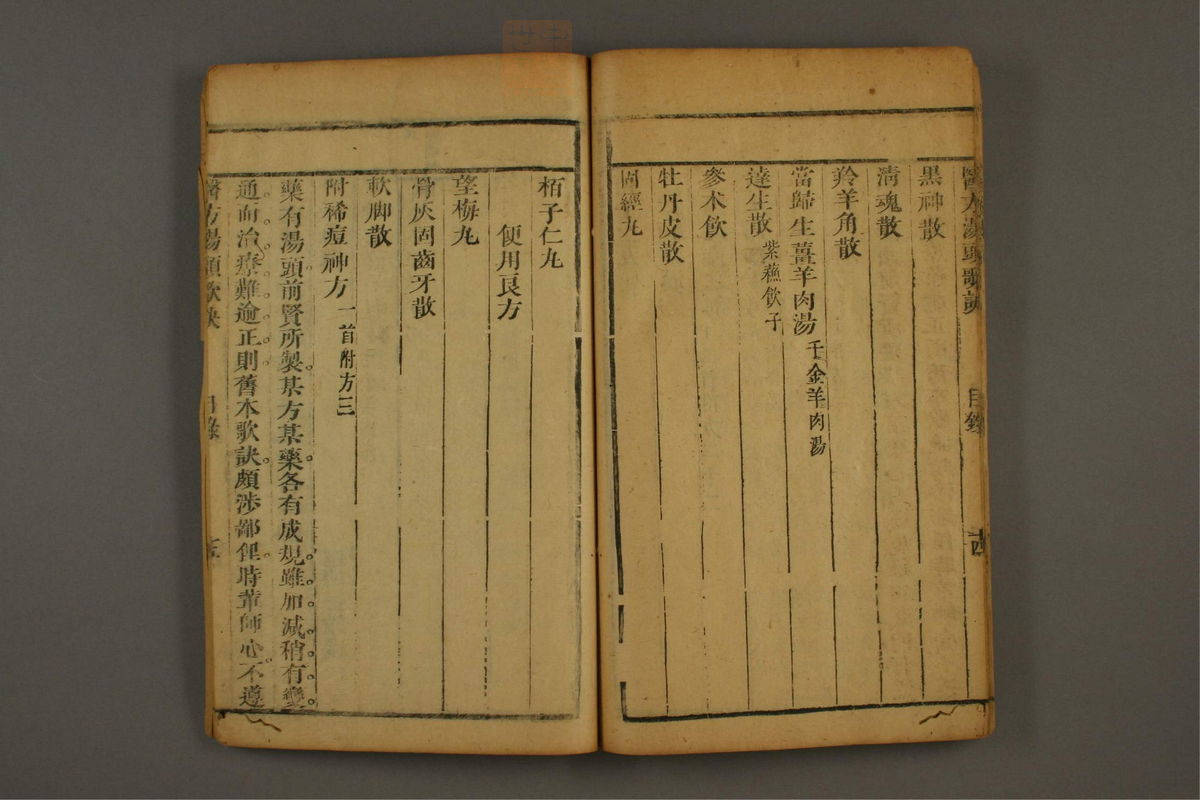 醫方湯頭歌訣 目錄 十四
黑神散
清魂散
羚羊角散
當歸生薑羊肉湯 千金羊肉湯
達生散 紫蘇飲子
參朮飲
牡丹皮散
固經丸
栢子仁丸
便用良方
望梅丸
骨灰固齒牙散
軟脚散
附稀痘神方 一首附方三
藥有湯頭前賢所製某方某藥各有成規。雖加減稍有變
通而治療難逾正則舊本歌訣頗涉鄙俚。時輩師心不遵
醫方湯頭歌訣 目錄